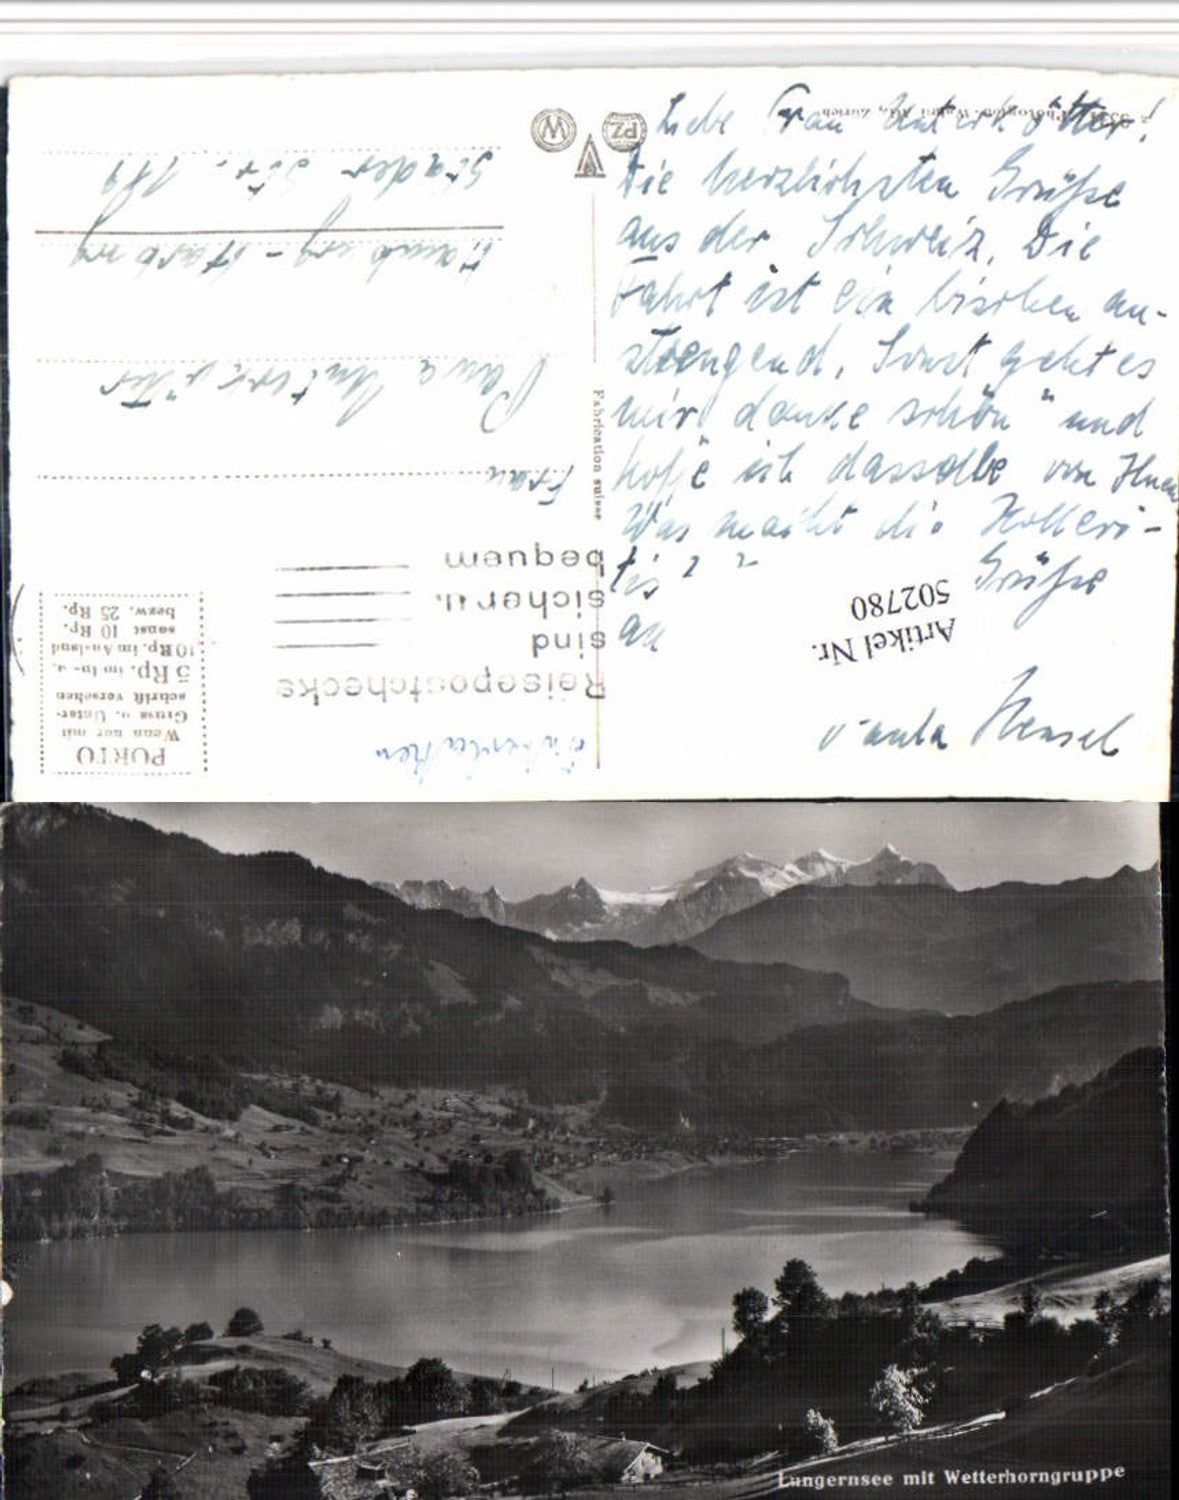 Liebe Frau Unterkötter!
Die herzlichsten Grüße
aus der Schweiz. Die
Fahrt ist ein bischen an-
strengend. Sonst geht es
mir "danke schön" und
hoffe ich dasselbe von Ihnen
Was macht die Kolleri-
tis? ? Grüße
an
Hensel
Artikel Nr.
502780
Photoglob-Wehrli AG., Zürich
PZ
W
Fabrication suisse
Interlaken
PORTO
Wenn nur mit
Gruss u. Unter-
schrift versehen
5 Rp. im In- u.
10 Rp. im Ausland
sonst 10 Rp.
bezw. 25 Rp.
Reisepostchecks
sind
sicher u.
bequem
Frau
Unterkötter
Hamburg-Harburg
Stader Str.
Lungernsee mit Wetterhorngruppe